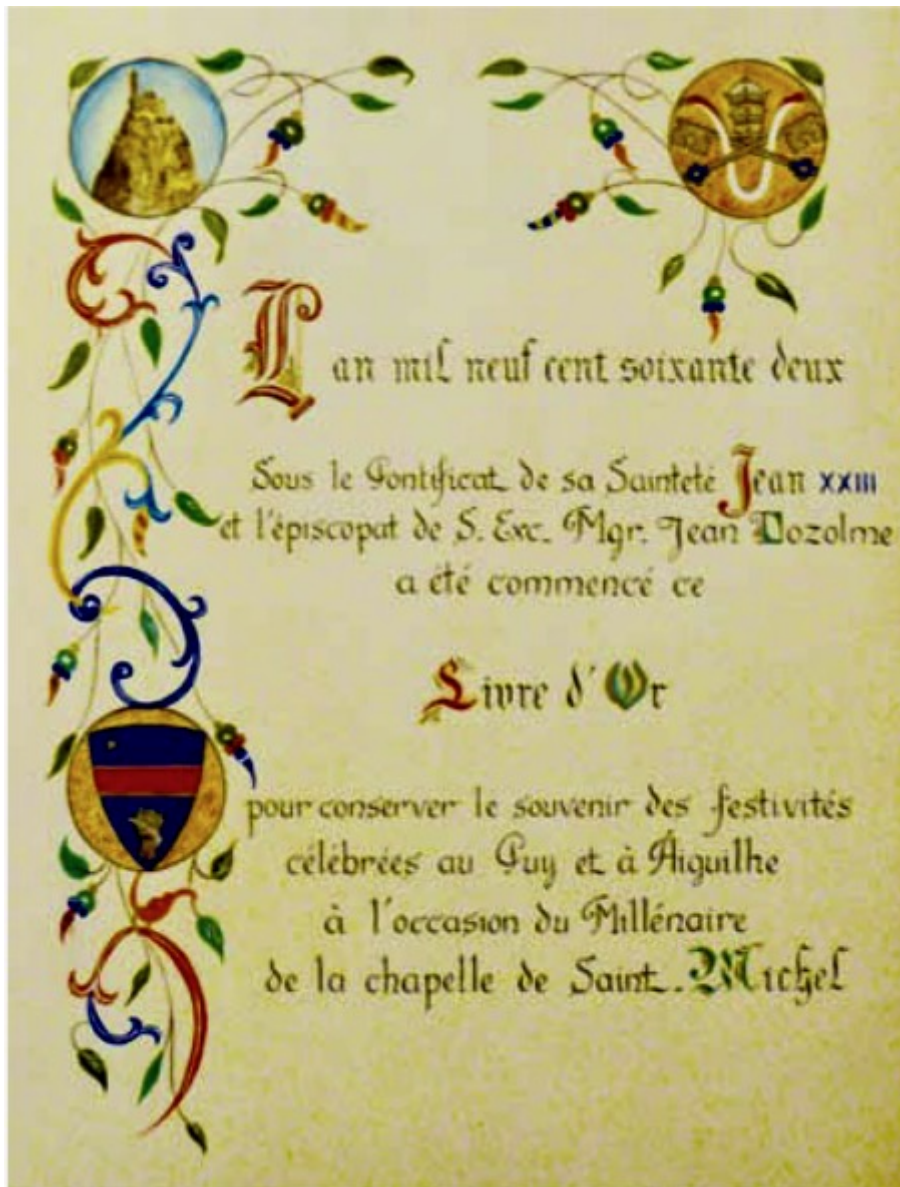 Lan mil neuf cent soixante deux
Sous le Pontificat de sa Sainteté Jean XXIII
et l'épiscopat de S. Exc. Mgr. Jean Dozolme
a été commencé ce
Livre d'Or
pour conserver le souvenir des festivités
célébrées au Puy et à Aiguilhe
à l'occasion du Millénaire
de la chapelle de Saint-Michel